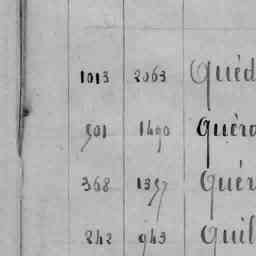 1013 2063 Quéd
501 1490 Quéra
368 1357 Quér
242 943 Quil